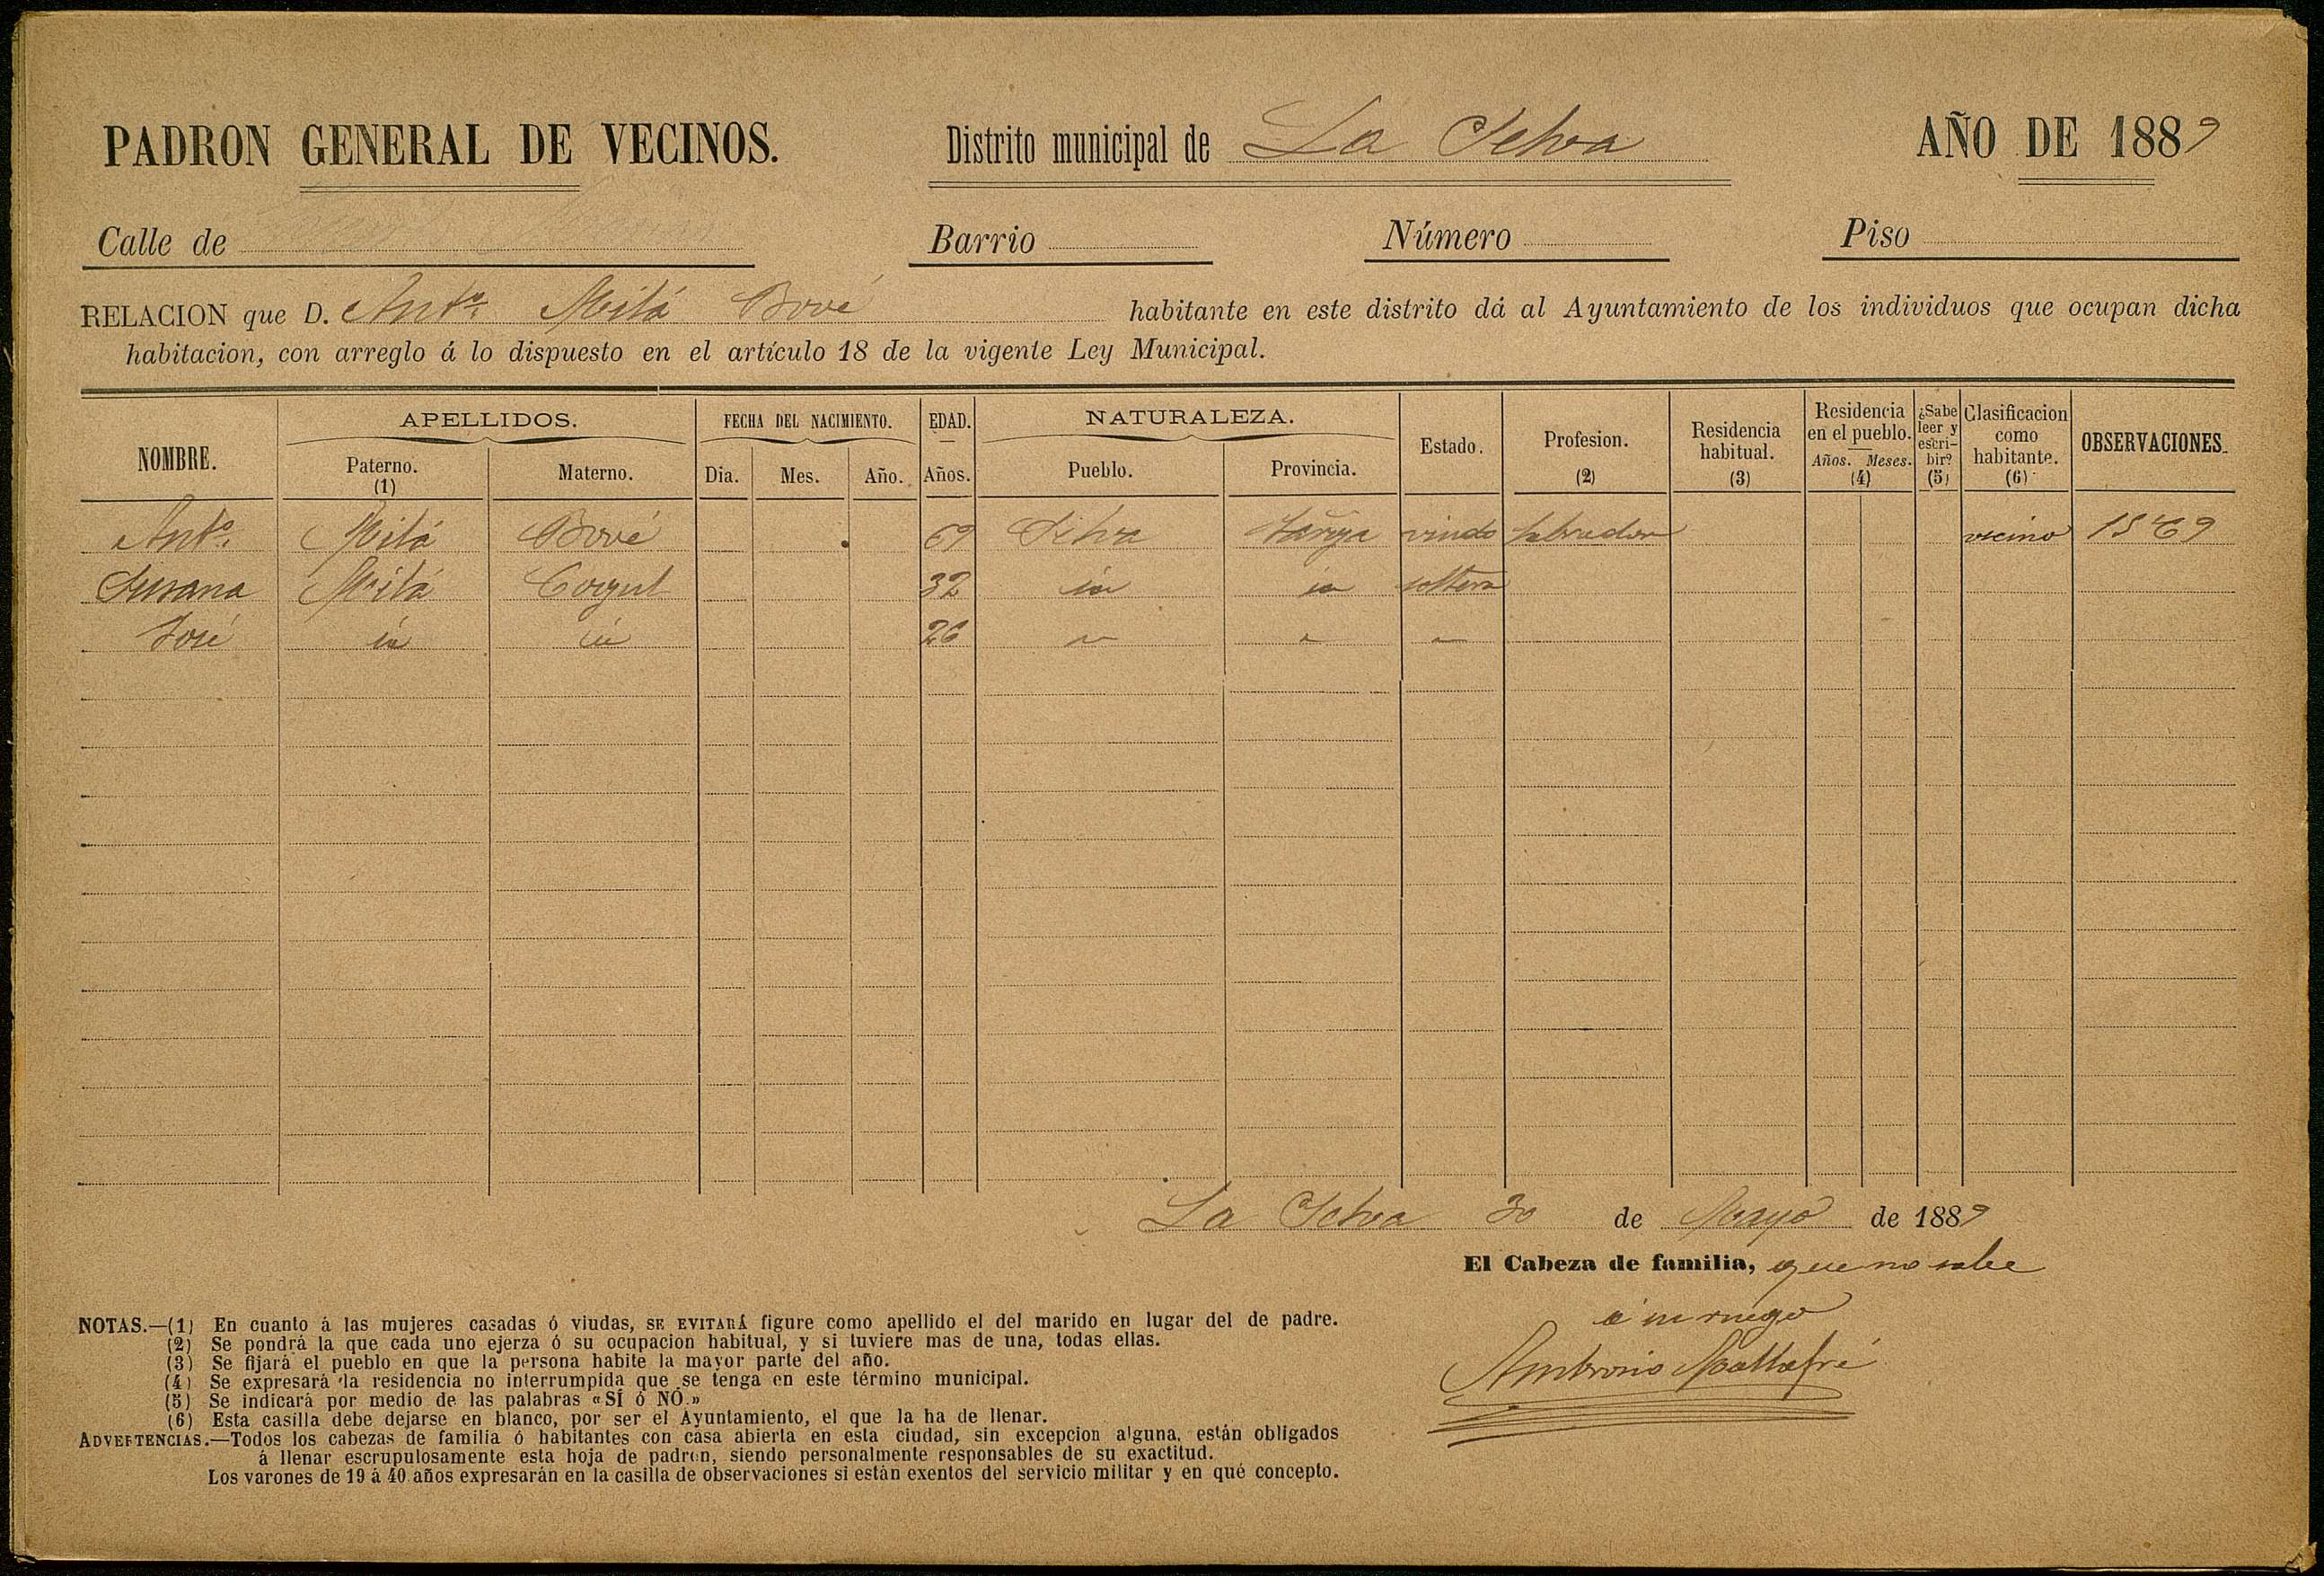 PADRON GENERAL DE VECINOS. Distrito municipal de La Selva AÑO DE 1889
Calle de Barrio Número Piso
RELACION que D. Antº Milá Bové habitante en este distrito dá al Ayuntamiento de los individuos que ocupan dicha
habitacion, con arreglo á lo dispuesto en el artículo 18 de la vigente Ley Municipal.
NOMBRE. APELLIDOS. FECHA DEL NACIMIENTO. EDAD. NATURALEZA. Estado. Profesion. (2) Residencia habitual. (3) Residencia en el pueblo. Años. Meses. (4) ¿Sabe leer y escribir? (5) Clasificacion como habitante. (6) OBSERVACIONES.
Paterno. (1) Materno. Dia. Mes. Año. Años. Pueblo. Provincia.
Antº Milá Bové 69 Selva viudo labrador vecino
Susana Milá Cogul 32 id id soltera
José id id 26 " " "
La Selva 30 de Mayo de 1889
El Cabeza de familia, que no sabe
á su ruego
Ambrosio Mallafré
NOTAS.—(1) En cuanto á las mujeres casadas ó viudas, SE EVITARÁ figure como apellido el del marido en lugar del de padre.
(2) Se pondrá la que cada uno ejerza ó su ocupacion habitual, y si tuviere mas de una, todas ellas.
(3) Se fijará el pueblo en que la persona habite la mayor parte del año.
(4) Se expresará la residencia no interrumpida que se tenga en este término municipal.
(5) Se indicará por medio de las palabras «SÍ ó NÓ.»
(6) Esta casilla debe dejarse en blanco, por ser el Ayuntamiento, el que la ha de llenar.
ADVERTENCIAS.—Todos los cabezas de familia ó habitantes con casa abierta en esta ciudad, sin excepcion alguna, están obligados
á llenar escrupulosamente esta hoja de padron, siendo personalmente responsables de su exactitud.
Los varones de 19 á 40 años expresarán en la casilla de observaciones si están exentos del servicio militar y en qué concepto.